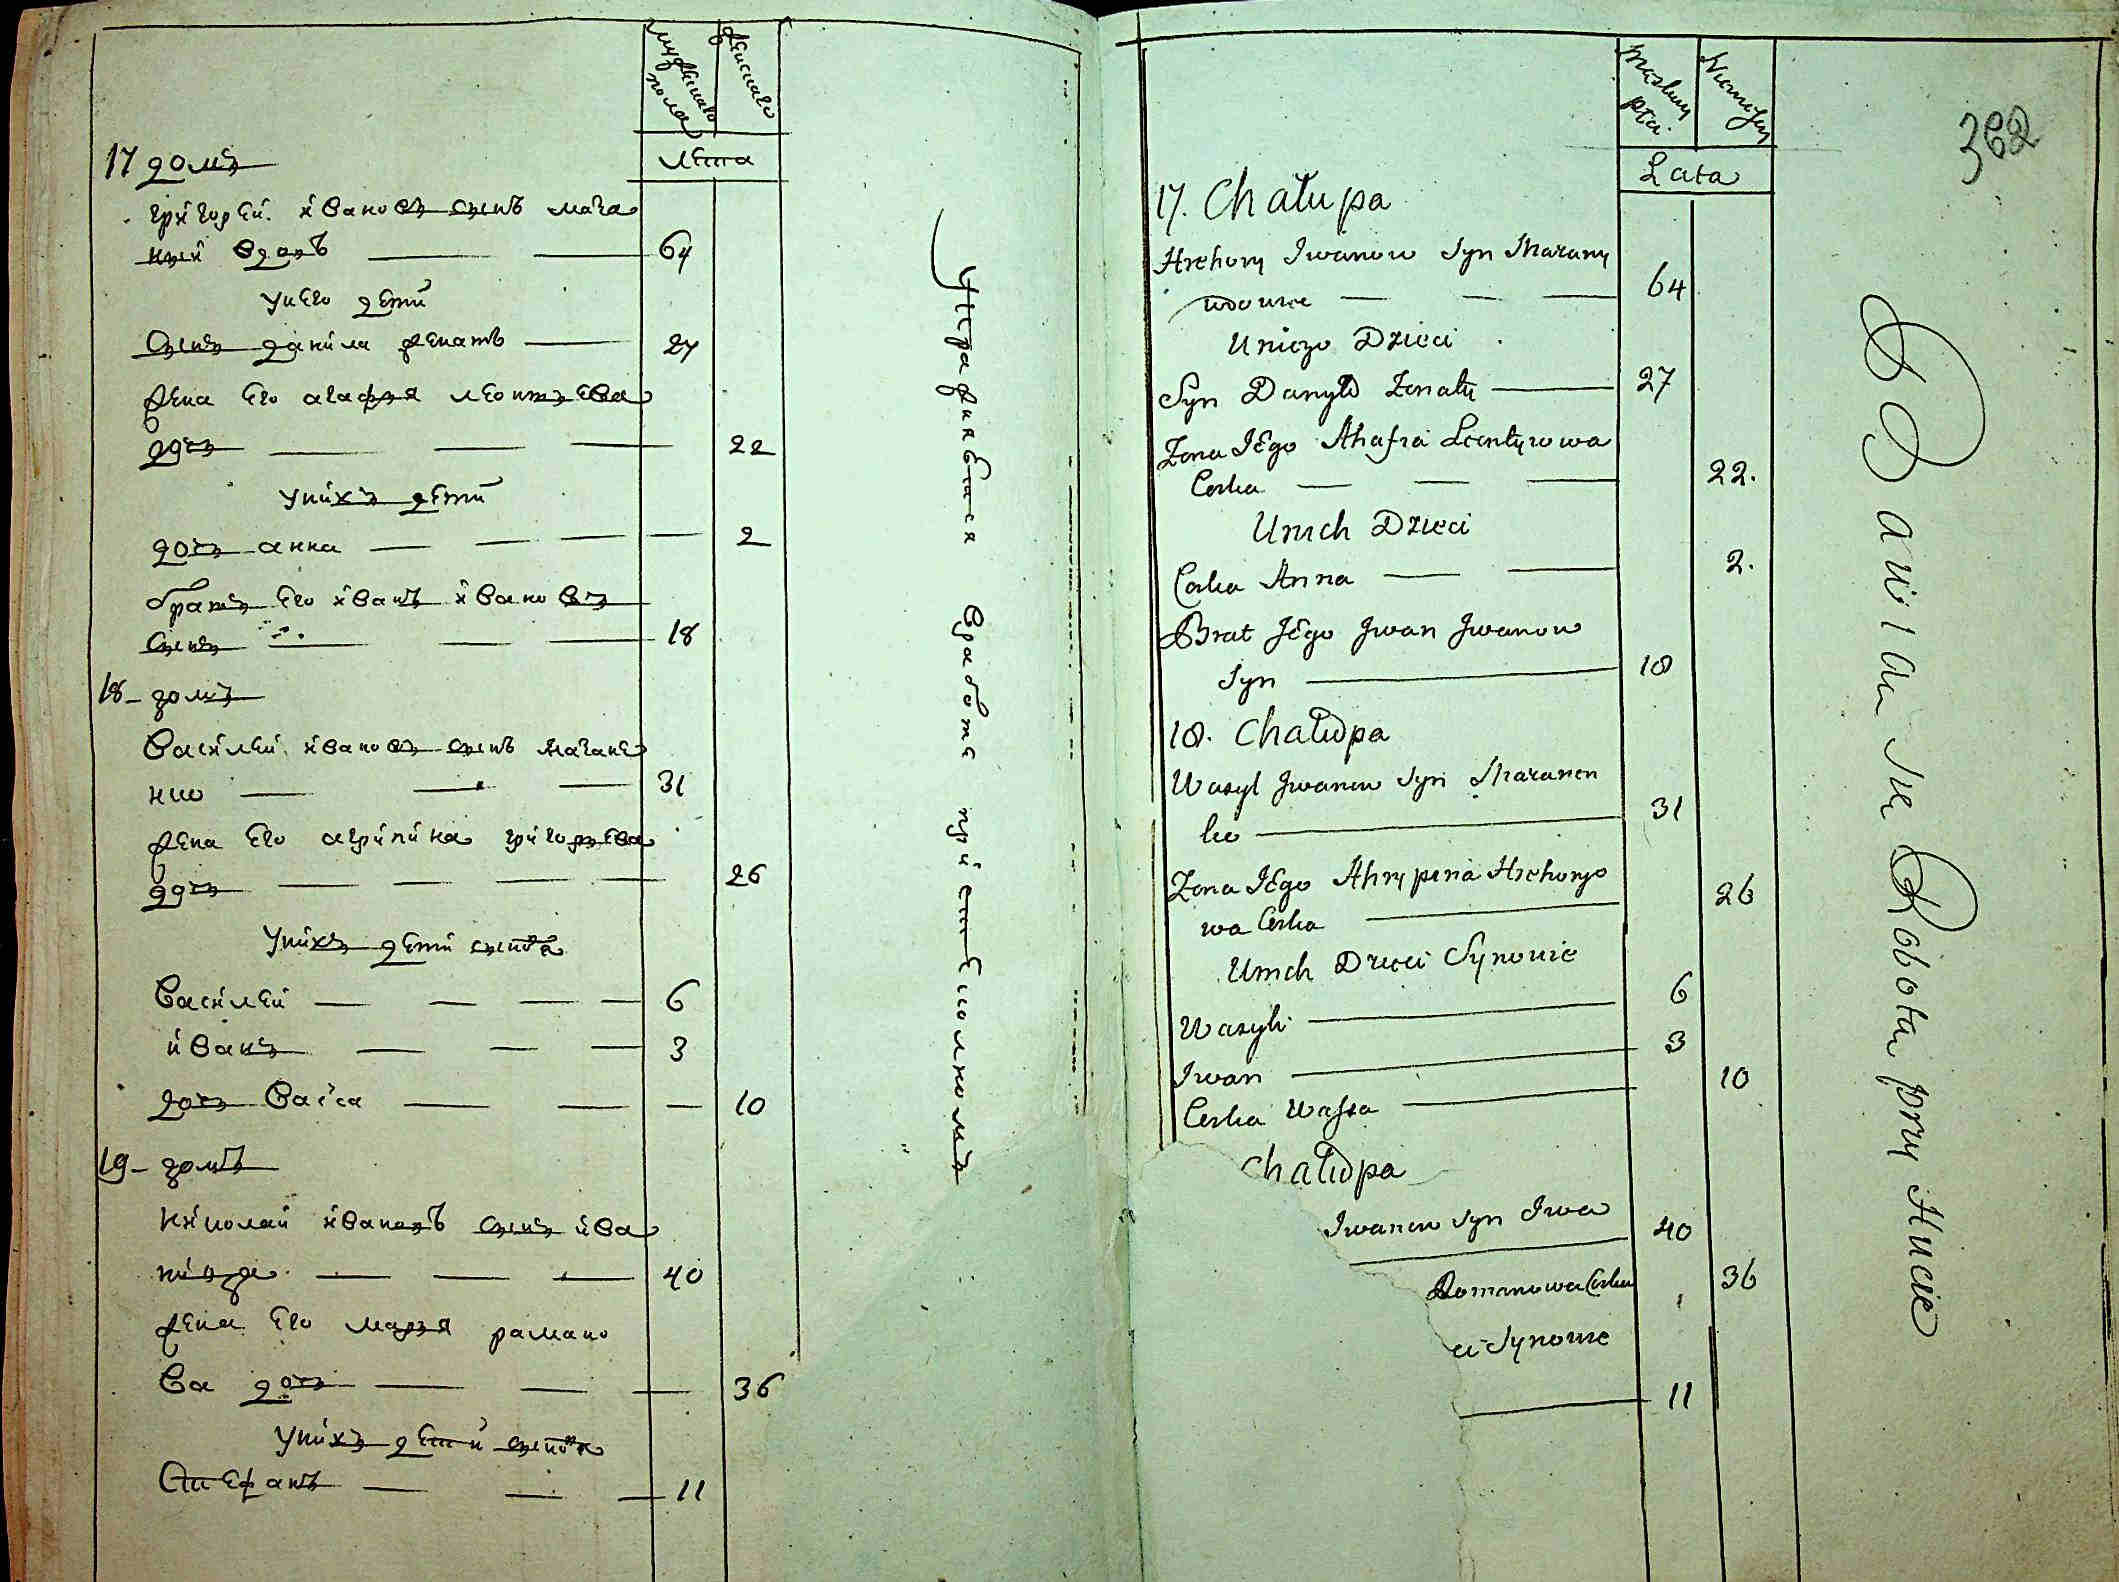 мужеска пола
женска
лета
17 домъ
григорей ивановъ сынъ маза
ный вдовъ 64
у него дети
Сынъ данила женатъ 27
жена его агафья леонтьева
дочь 22
у нихъ дети
дочь анна 2
братъ его иванъ ивановъ
сынъ 18
18 домъ
Василей ивановъ сынъ мазане
нко 31
жена его агрипина григорьева
дочь 26
у нихъ дети сыновя
Василей 6
иванъ 3
дочь Васса 10
19 домъ
николай ивановъ сынъ ива
жена его марья рамано
40
ва дочь 36
у нихъ дети сыновя
Стефанъ 11
упражняется в работе при стекольномъ
362
Męzkiey płci
Niewiesciey
Lata
17. Chałupa
Hrehory Iwanow Syn Mazany
wdowiec 64
U niego Dzieci
Syn Danyło Zonaty 27
Zona Jego Ahafia Leontyiowa
Corka 22.
U nich Dzieci
Corka Anna 2.
Brat Jego Iwan Iwanow
Syn 18
18. Chałupa
Wasyl Iwanow Syn Mazanen
ko 31
Zona Jego Ahrypina Hrehoryo
wa Corka 26
U nich Dzieci Synowie
Wasyli 6
Iwan 3
Corka Wassa 10
Chałupa
Iwanow Syn Iwa
40
Romanowa Corka 36
ci Synowie
11
Bawiau sie Robotau przy Hucie